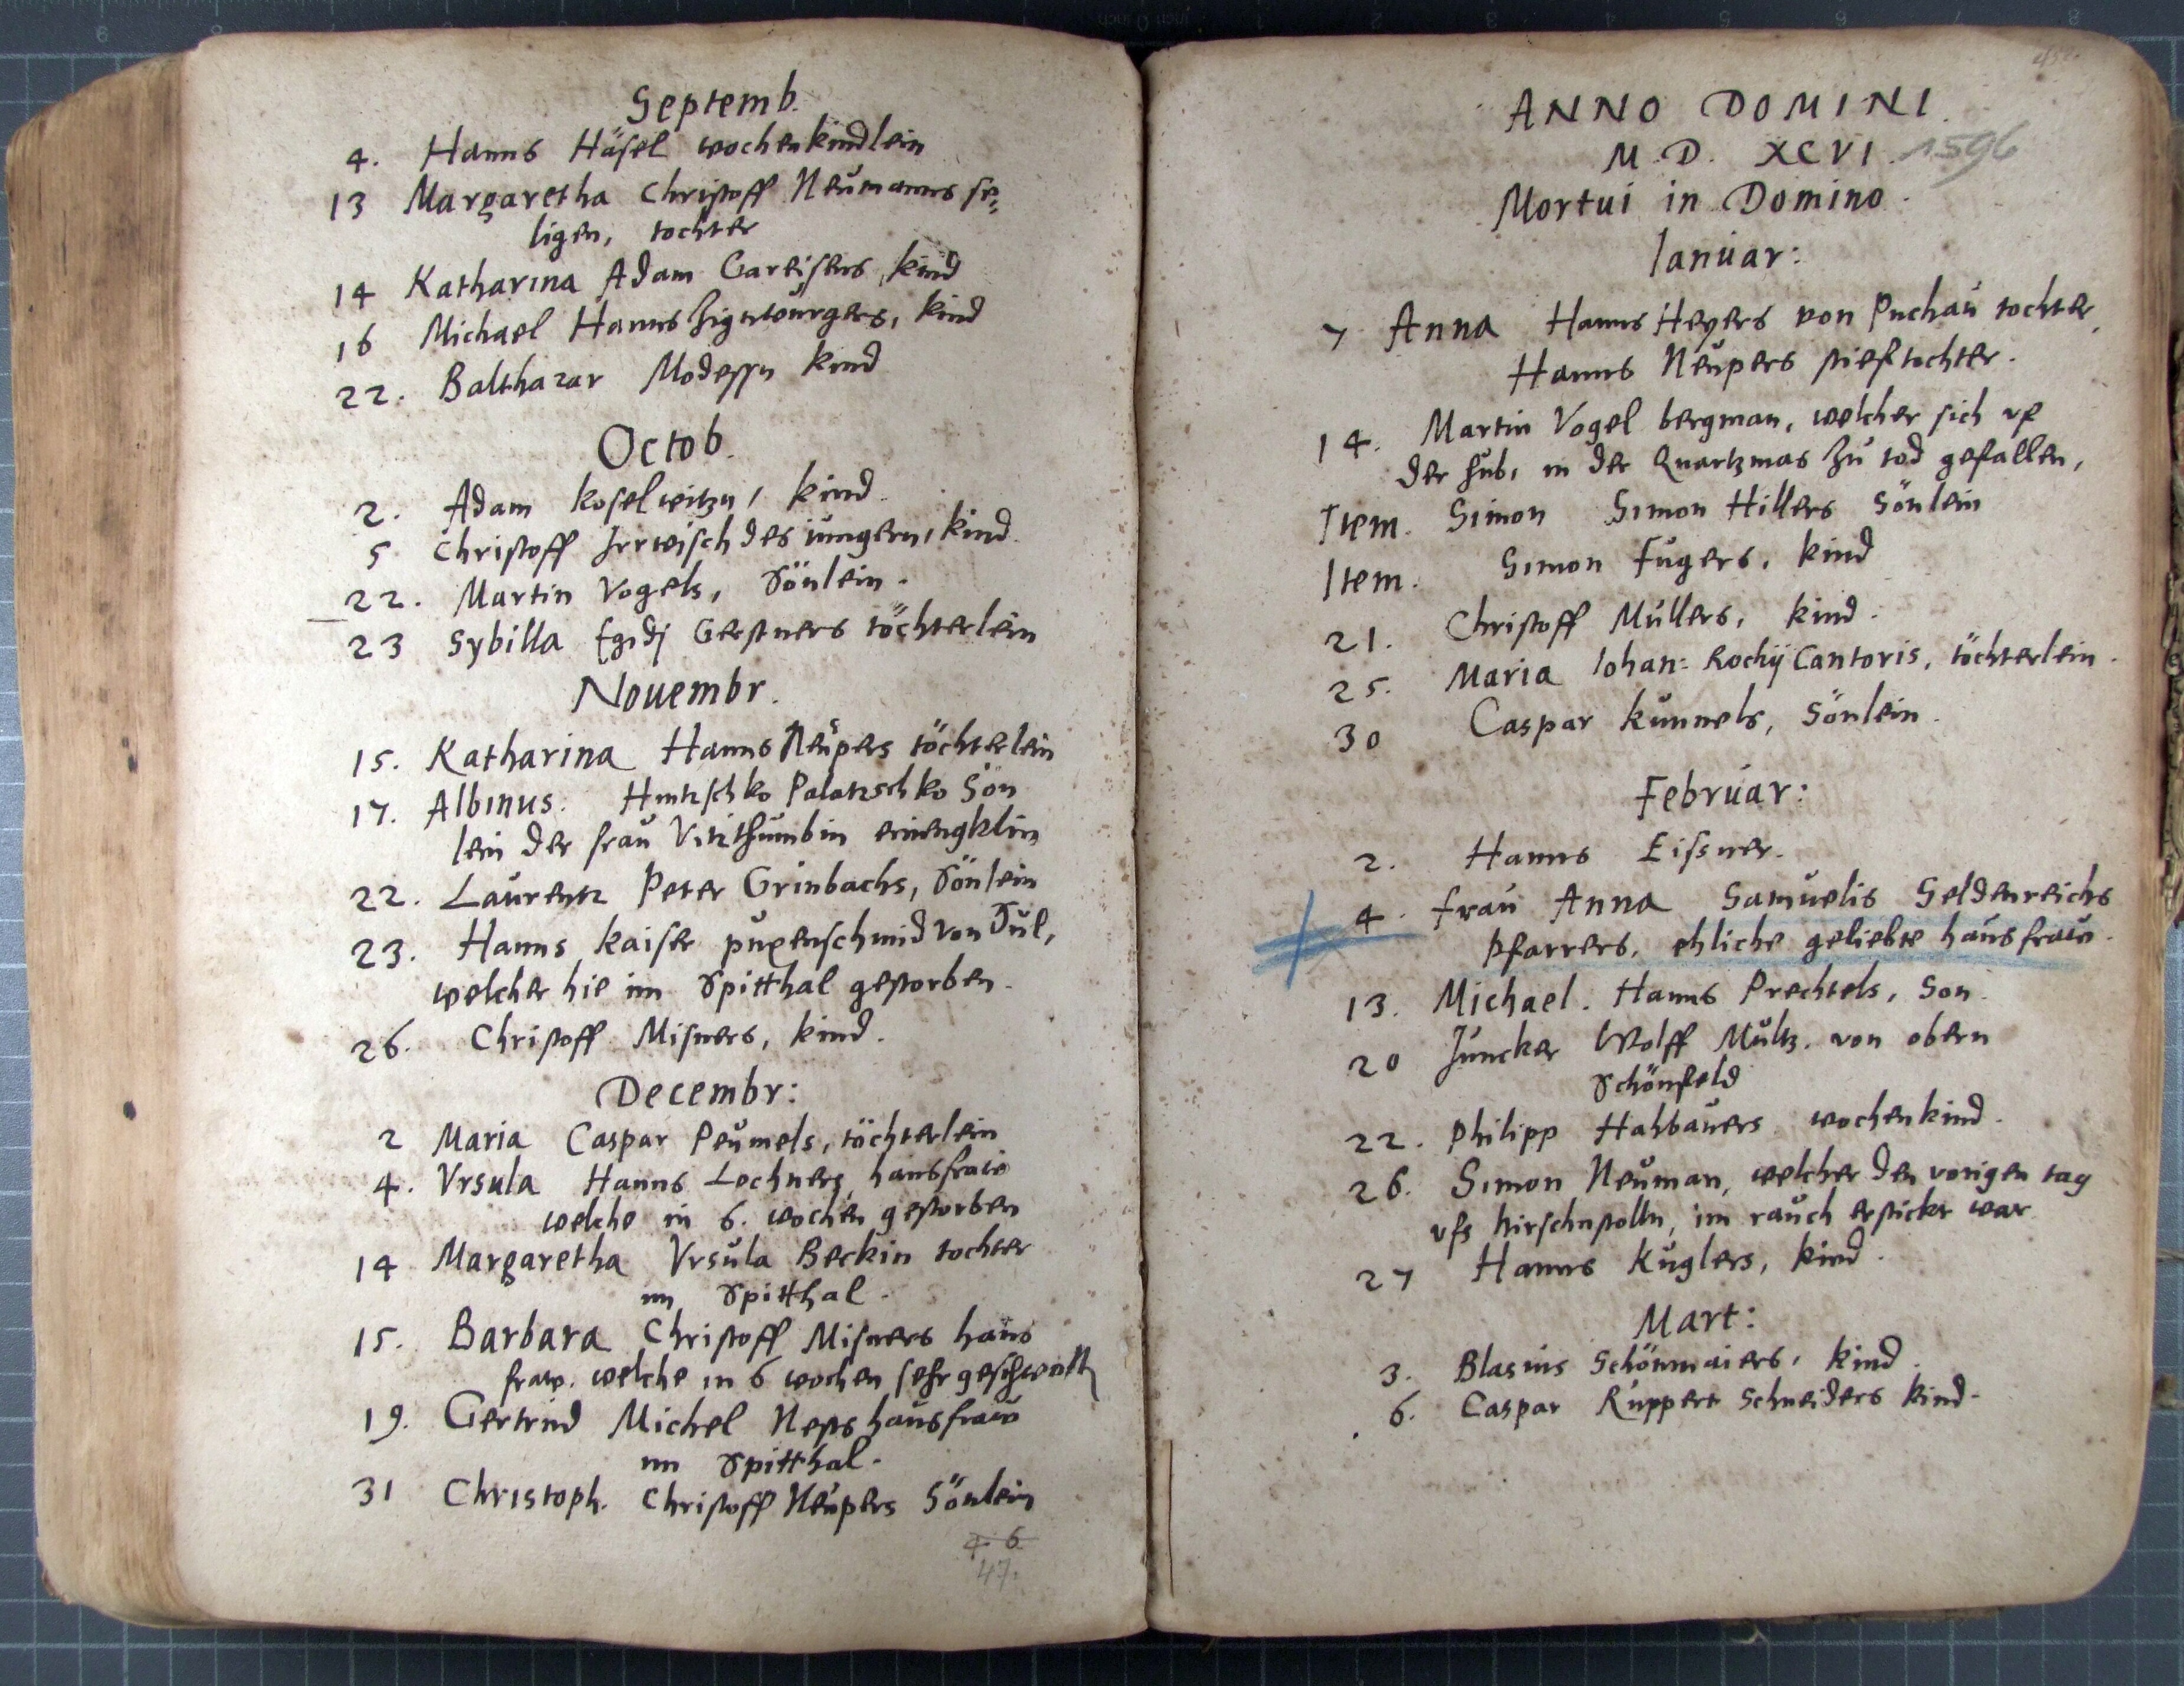 Septemb.
4. Hanns Häsel wochenkindlein
13 Margaretha Christoff Neumanns se=
ligen, tochter
14 Katharina Adam Gareisens kind
16 Michael Hanns kind
22. Balthazar kind
Octob.
2. Adam koselwitzn, kind.
5 Christoff Irrwisch des iungern, kind.
22. Martin Vogels, Sönlein.
23 Sybilla Egidj Gerstners töchterlein
Nouembr.
15. Katharina Hanns Neupers töchterlein
17. Albinus. Palatzschko Sön
lein der frau Vitzthumbin
22. Laurentz Peter Grinbachs, Sönlein
23. Hanns kaiser puxenschmid von Sul,
welcher hie im Spitthal gestorben.
26. Christoff Misners, kind.
Decembr:
2 Maria Caspar Peumels, töchterlein
4. Vrsula Hanns Lochners hausfraw
welche in 6. wochen gestorben
14 Margaretha Vrsula Beckin tochter
im Spitthal.
15. Barbara Christoff Misners haus
fraw. welche in 6 wochen sehr
19. Gertrud Michel hausfraw
im Spitthal.
31 Christoph. Christoff Neupers Sönlein
4 6
47.
ANNO DOMINI.
M.D. XCVI. 1596
Mortui in Domino.
Ianuar:
7 Anna Hanns Heyers von Puchau tochter,
Hanns Neupers stieftochter.
14. Martin Vogel bergman, welcher sich vf
der hub, in der Quartzmas zu tod gefallen,
Item. Simon Simon Hillers Sönlein
Item. Simon Fugers, kind
21. Christoff Müllers, kind.
25. Maria Iohan: Rochij Cantoris, töchterlein.
30 Caspar kunnels, Sönlein.
Februar:
2. Hanns Eissner.
4. Frau Anna Samuelis Seldenreichs
Pfarrers, ehliche geliebte hausfraw.
13. Michael. Hanns Prechtels, Son.
20 Juncker Wolff Multz. von obern
Schönfeld
22. Philipp Hahbauers wochenkind.
26. Simon Neuman, welcher den vorigen tag
vfs hirschnstolln, im rauch erstickt war
27 Hanns Kuglers, kind.
Mart:
3. Blasius Schönmaiers, kind.
6. Caspar Ruppert Schneiders kind.